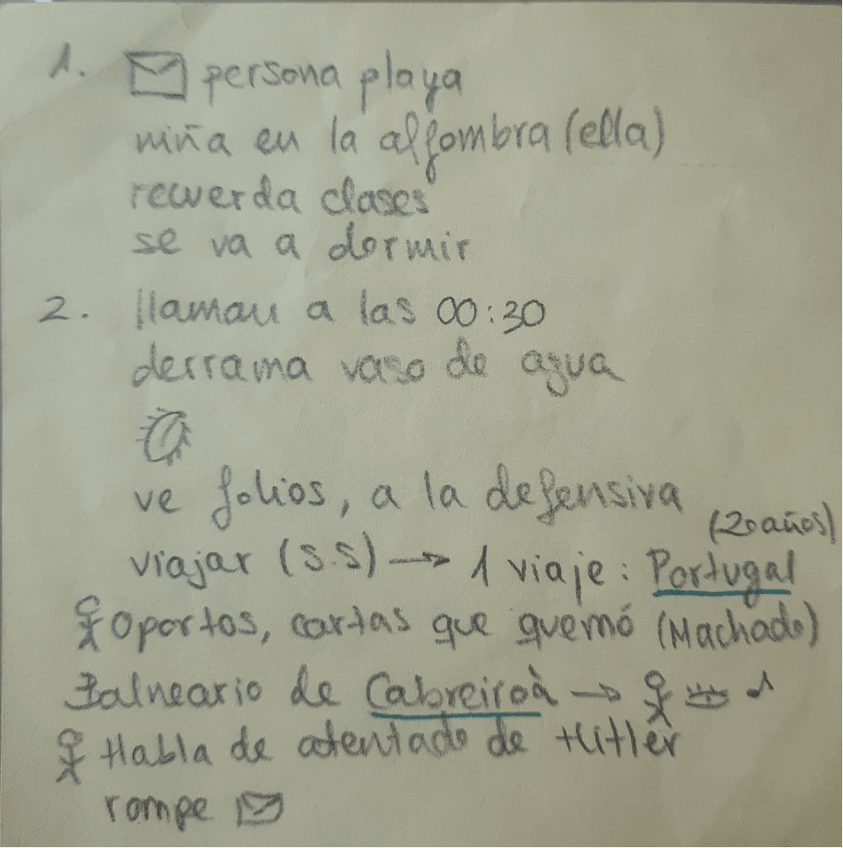 1. persona playa
niña en la alfombra (ella)
recuerda clases
se va a dormir
2. llaman a las 00:30
derrama vaso de agua
ve folios, a la defensiva
(20 años)
viajar (S.S) → 1 viaje: Portugal
Oportos, cartas que quemó (Machado)
Balneario de Cabreiroà → ♪
Habla de atentado de Hitler
rompe